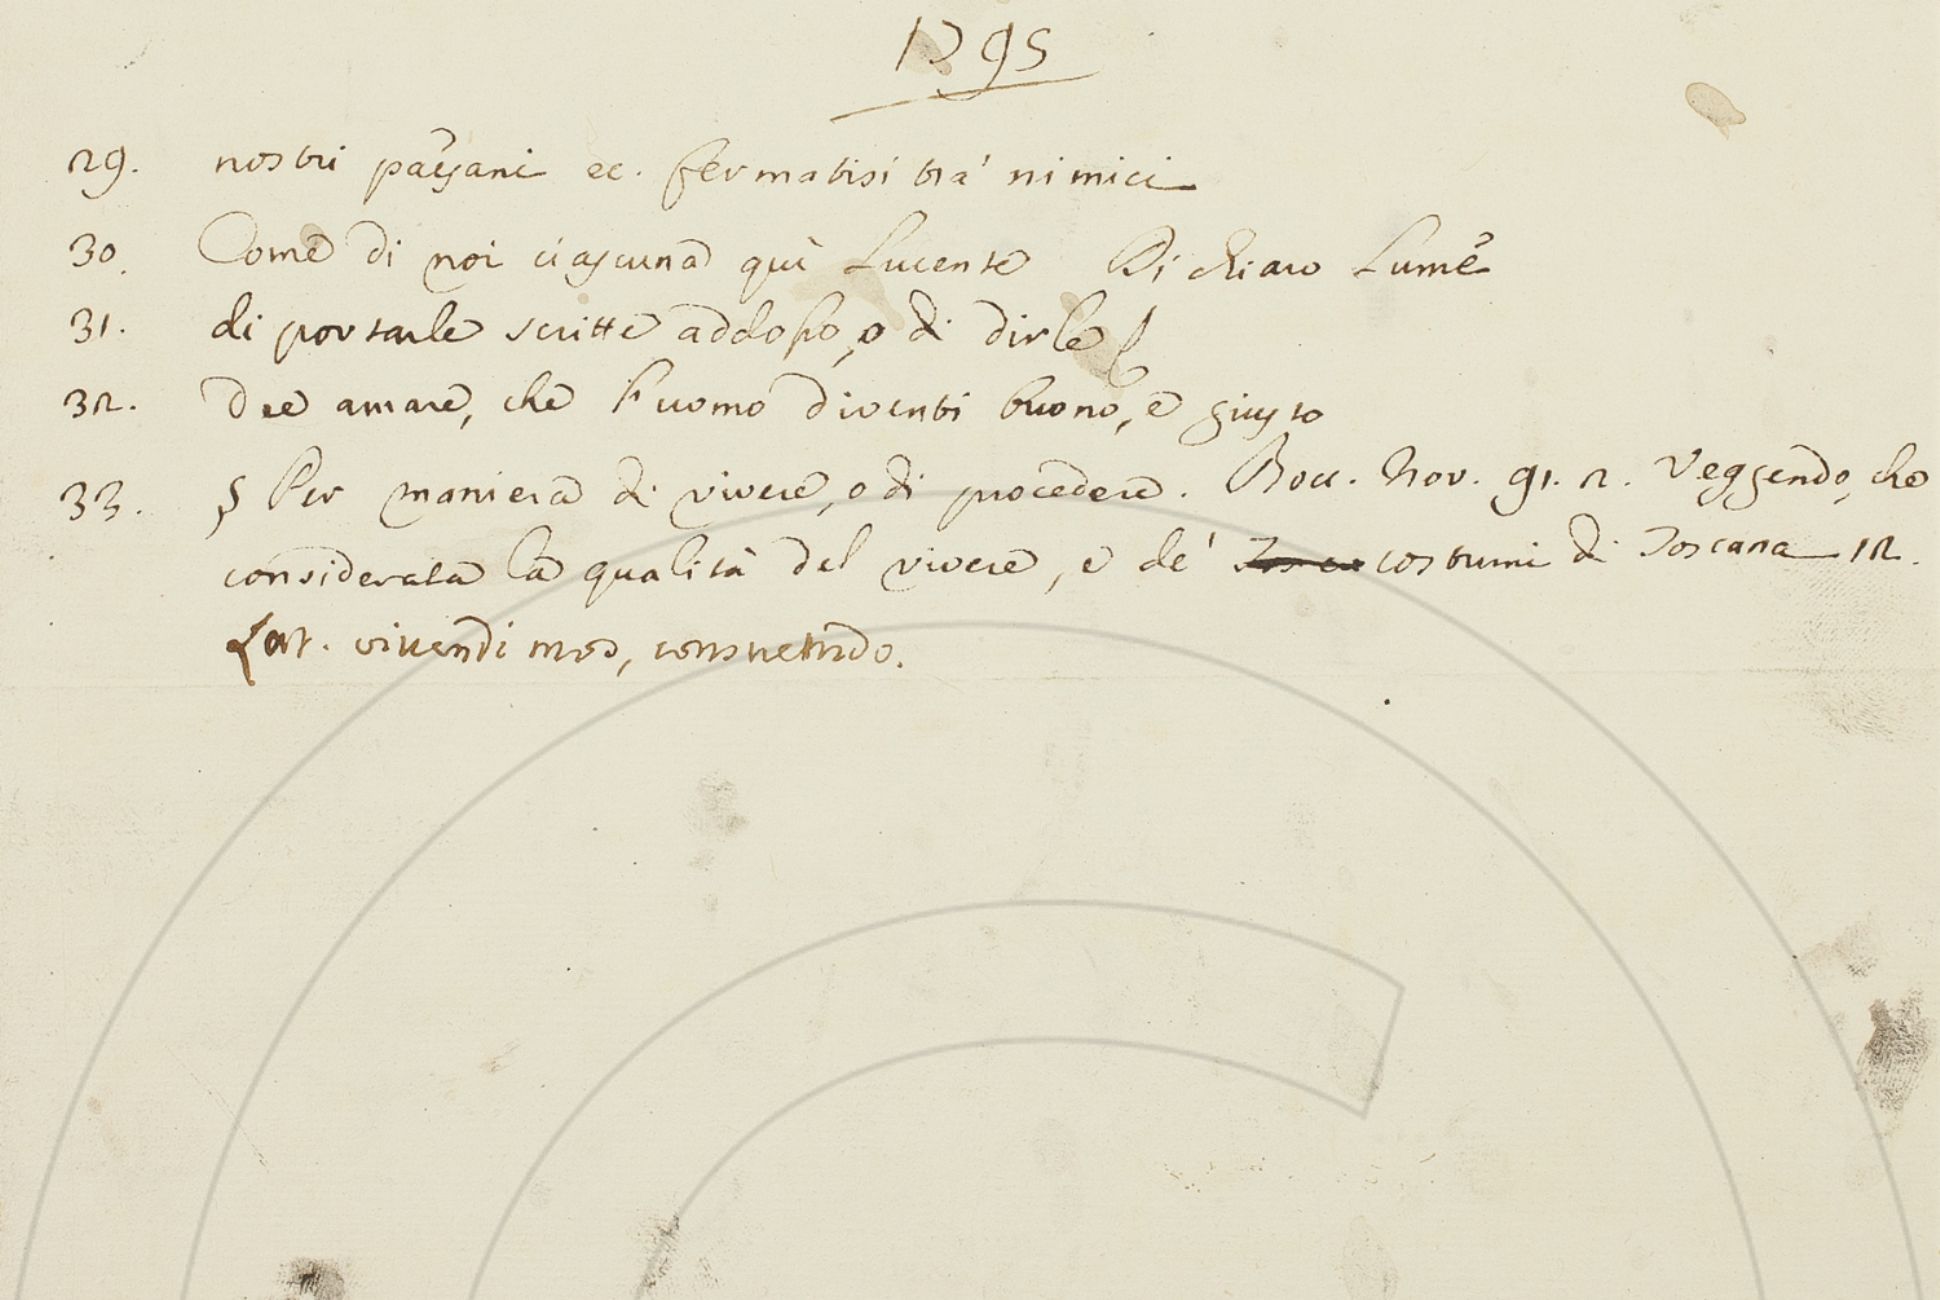 1295
29. nostri paesani ec. fermatisi trà nimici
30. Come di noi ciascuna quì Lucente Di chiaro Lume
31. di portarle scritte addosso, o di dirle
32. dee amare, che l'uomo diventi buono, e giusto
33. § Per maniera di vivere, o di procedere. Bocc. Nov. 91. 2. Veggendo, che
considerata la qualità del vivere, e de' costumi di Toscana 12.
Lat. vivendi mos, consuetudo.